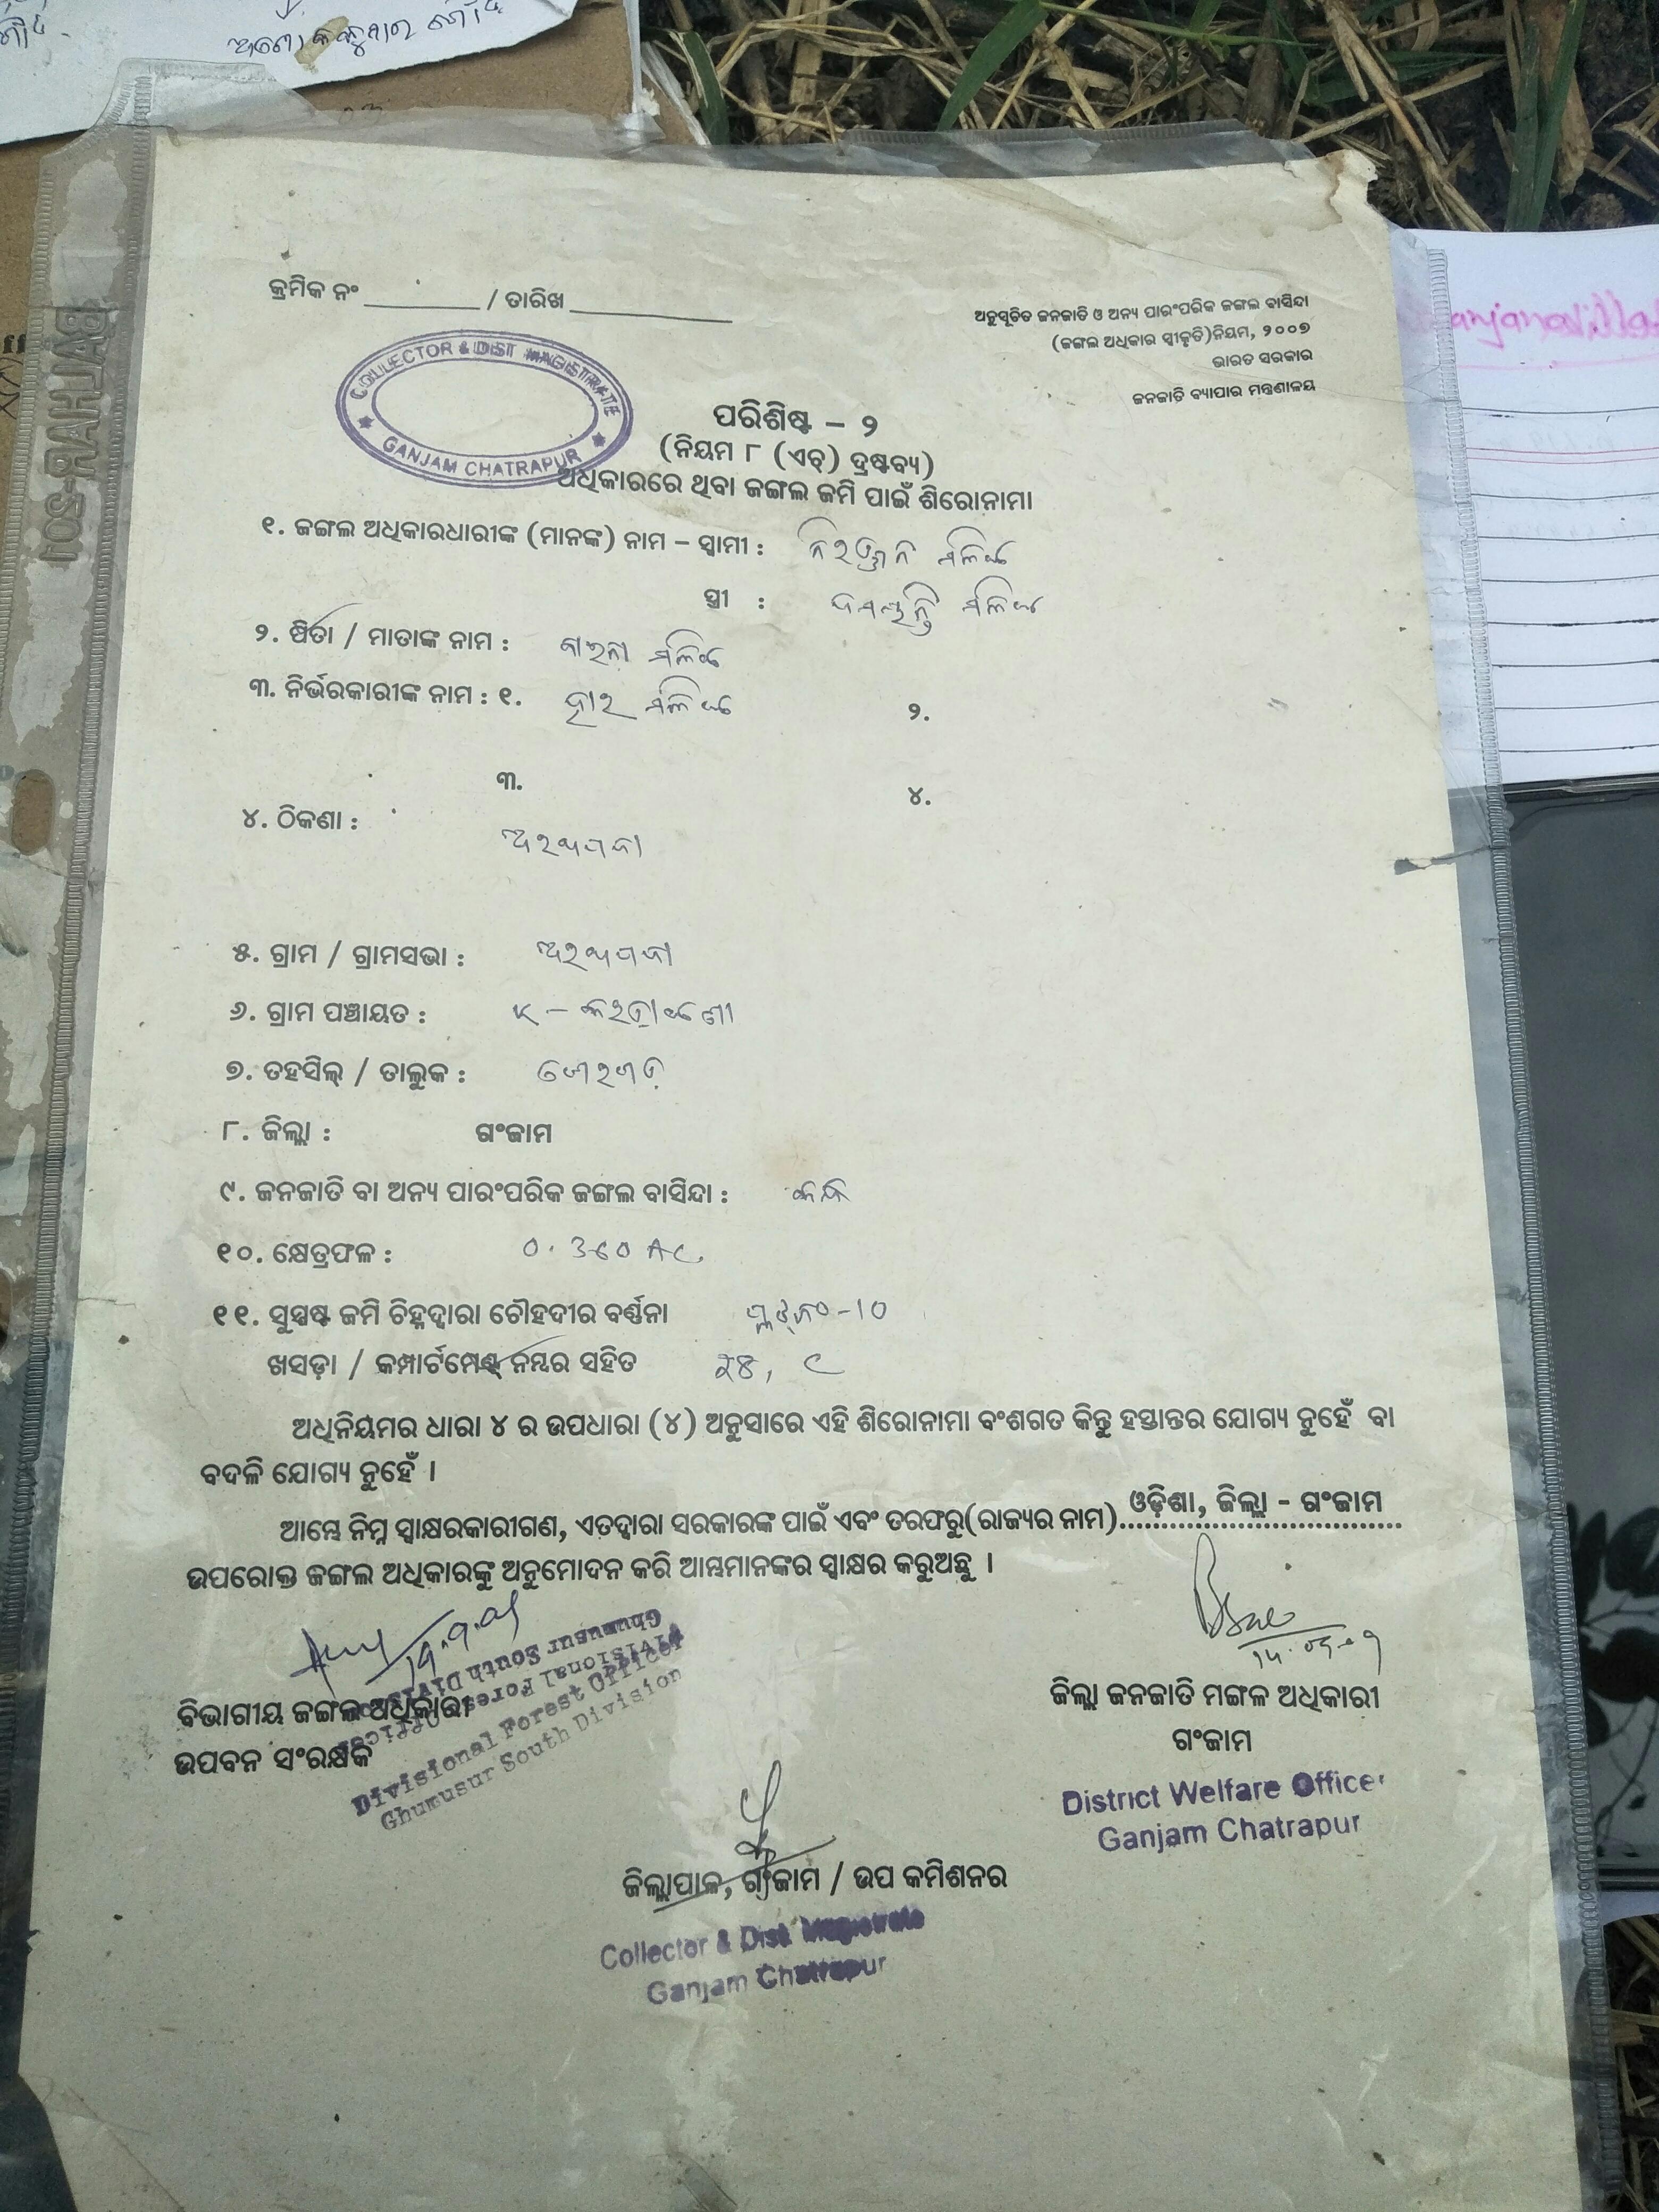 କ୍ରମିକ ନଂ ________ / ତାରିଖ ____________
ଅନୁସୂଚିତ ଜନଜାତି ଓ ଅନ୍ୟ ପାରଂପରିକ ଜଙ୍ଗଲ ବାସିନ୍ଦା
(ଜଙ୍ଗଲ ଅଧିକାର ସ୍ୱୀକୃତି)ନିୟମ, ୨୦୦୭
ଭାରତ ସରକାର
ଜନଜାତି ବ୍ୟାପାର ମନ୍ତ୍ରଣାଳୟ
COLLECTOR & DIST MAGISTRATE
GANJAM CHATRAPUR
ପରିଶିଷ୍ଟ – ୨
(ନିୟମ ୮ (ଏଚ୍) ଦ୍ରଷ୍ଟବ୍ୟ)
ଅଧିକାରରେ ଥିବା ଜଙ୍ଗଲ ଜମି ପାଇଁ ଶିରୋନାମା
୧. ଜଙ୍ଗଲ ଅଧିକାରଧାରୀଙ୍କ (ମାନଙ୍କ) ନାମ – ସ୍ୱାମୀ : ନିରଞ୍ଜନ ମଳିକ
ସ୍ତ୍ରୀ : ଦମୟନ୍ତି ମଳିକ
୨. ପିତା / ମାତାଙ୍କ ନାମ : ମଳିକ
୩. ନିର୍ଭରକାରୀଙ୍କ ନାମ : ୧. ମଳିକ ୨.
୩. ୪.
୪. ଠିକଣା :
୫. ଗ୍ରାମ / ଗ୍ରାମସଭା :
୬. ଗ୍ରାମ ପଞ୍ଚାୟତ :
୭. ତହସିଲ୍ / ତାଲୁକ :
୮. ଜିଲ୍ଲା : ଗଂଜାମ
୯. ଜନଜାତି ବା ଅନ୍ୟ ପାରଂପରିକ ଜଙ୍ଗଲ ବାସିନ୍ଦା : କନ୍ଧ
୧୦. କ୍ଷେତ୍ରଫଳ : 0.360 AC.
୧୧. ସୁସ୍ପଷ୍ଟ ଜମି ଚିହ୍ନଦ୍ୱାରା ଚୌହଦୀର ବର୍ଣ୍ଣନା ପ୍ଲଟ୍ ନଂ -10
ଖସଡ଼ା / କମ୍ପାର୍ଟମେଣ୍ଟ ନମ୍ବର ସହିତ
ଅଧିନିୟମର ଧାରା ୪ ର ଉପଧାରା (୪) ଅନୁସାରେ ଏହି ଶିରୋନାମା ବଂଶଗତ କିନ୍ତୁ ହସ୍ତାନ୍ତର ଯୋଗ୍ୟ ନୁହେଁ ବା
ବଦଳି ଯୋଗ୍ୟ ନୁହେଁ ।
ଆମ୍ଭେ ନିମ୍ନ ସ୍ୱାକ୍ଷରକାରୀଗଣ, ଏତଦ୍ୱାରା ସରକାରଙ୍କ ପାଇଁ ଏବଂ ତରଫରୁ(ରାଜ୍ୟର ନାମ) ଓଡ଼ିଶା, ଜିଲ୍ଲା - ଗଂଜାମ
ଉପରୋକ୍ତ ଜଙ୍ଗଲ ଅଧିକାରଙ୍କୁ ଅନୁମୋଦନ କରି ଆମ୍ଭମାନଙ୍କର ସ୍ୱାକ୍ଷର କରୁଅଛୁ ।
ବିଭାଗୀୟ ଜଙ୍ଗଲ ଅଧିକାରୀ
ଉପବନ ସଂରକ୍ଷକ
Divisional Forest Officer
Ghumusur South Division
Divisional Forest Officer
Ghumusur South Division
ଜିଲ୍ଲା ଜନଜାତି ମଙ୍ଗଳ ଅଧିକାରୀ
ଗଂଜାମ
District Welfare Officer
Ganjam Chatrapur
ଜିଲ୍ଲାପାଳ, ଗଂଜାମ / ଉପ କମିଶନର
Collector & Dist Magistrate
Ganjam Chatrapur